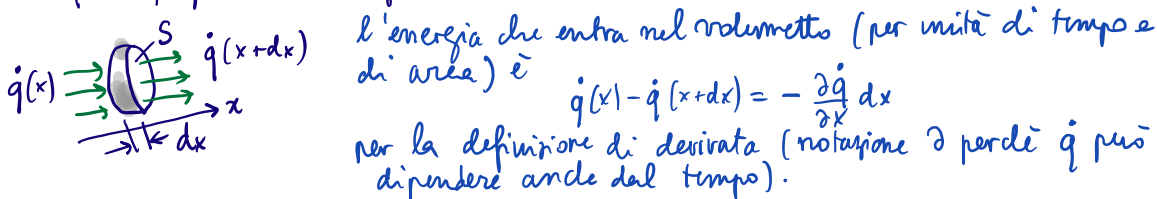 S
q̇(x)
q̇(x+dx)
x
dx
l'energia che entra nel volumetto (per unità di tempo e
di area) è
q̇(x) - q̇(x+dx) = - ∂q̇/∂x dx
per la definizione di derivata (notazione ∂ perchè q̇ può
dipendere anche dal tempo).